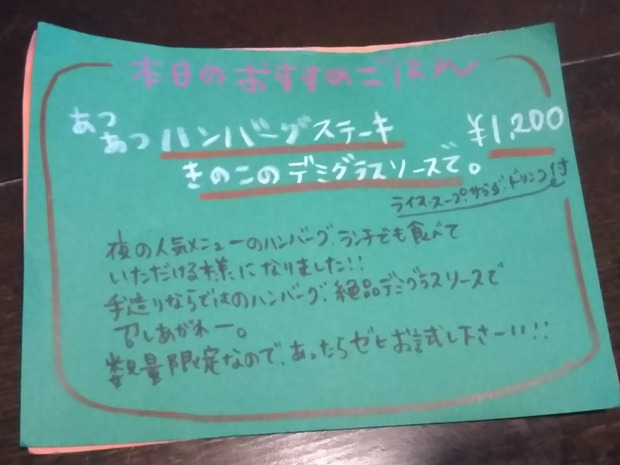 本日のおすすめごはん
あつ
あつ ハンバーグステーキ ¥1,200
きのこのデミグラスソースで。
ライス・スープ・サラダ・ドリンク付
夜の人気メニューのハンバーグ、ランチでも食べて
いただける様になりました!!
手造りならではのハンバーグ、絶品デミグラスソースで
召しあがれー。
数量限定なので、あったらゼヒお試し下さーい!!